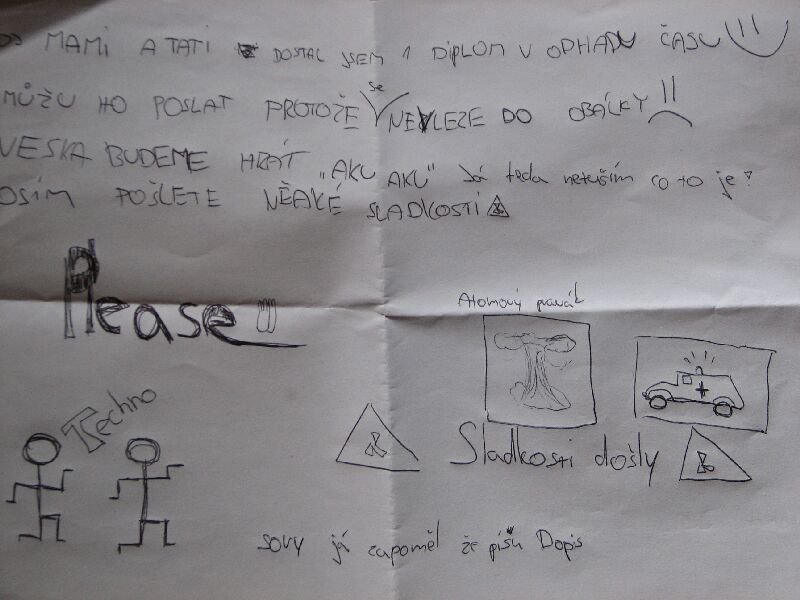 MAMI A TATI DOSTAL JSEM 1 DIPLOM V ODHADU ČASU!!
MŮŽU HO POSLAT PROTOŽE se NEVLEZE DO OBÁLKY!!
VESKA BUDEME HRÁT „AKU AKU" Já teda netuším co to je?
OSÍM POŠLETE NĚAKÉ SLADKOSTI
Please!!
Atomový
Techno
Sladkosti došly
sovy já zapoměl že píšu Dopis